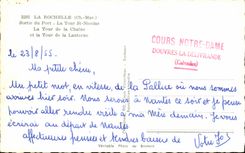 2293 LA ROCHELLE (Ch.-Mar.)
Sortie du Port - La Tour St-Nicolas
La Tour de la Chaîne
et la Tour de la Lanterne
COURS NOTRE-DAME
DOUVRES LA DELIVRANDE
(Calvados)
le 23/8/55
Ma petite chérie,
Un petit mot, en vitesse, de La Pallice où nous sommes
arrivés hier soir. Nous serons à Nantes ce soir et je pense
pouvoir aller rendre visite à ma mère demain. Je vous
écrirai au départ de Nantes
affectueuses pensées et tendres baisers de